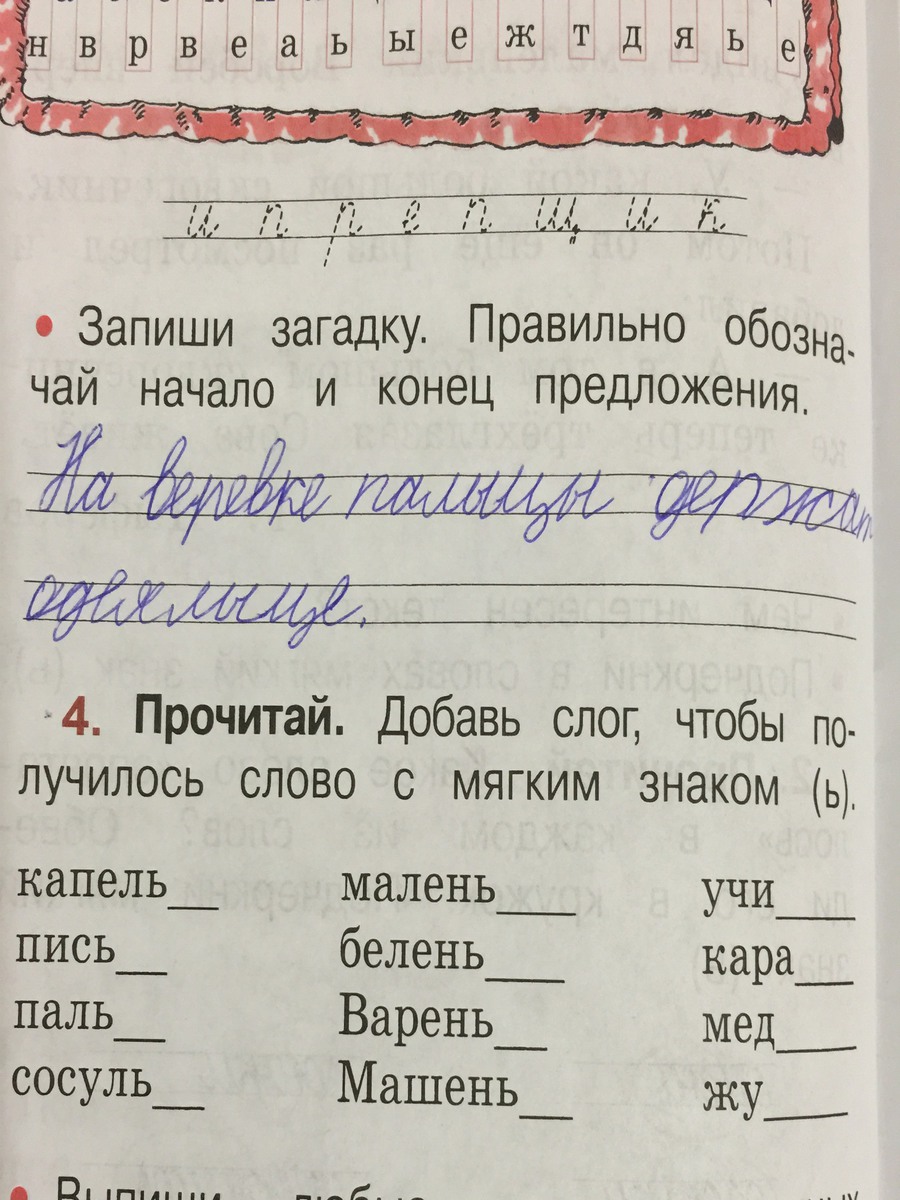 н в р в е а ь ы е ж т д я ь е
и п р е п щ и к
• Запиши загадку. Правильно обозна-
чай начало и конец предложения.
На веревке пальцы держат
одеяльце.
4. Прочитай. Добавь слог, чтобы по-
лучилось слово с мягким знаком (ь).
капель__ малень____ учи____
пись__ белень____ кара___
паль__ Варень__ мед____
сосуль__ Машень__ жу____
• Выпиши любые